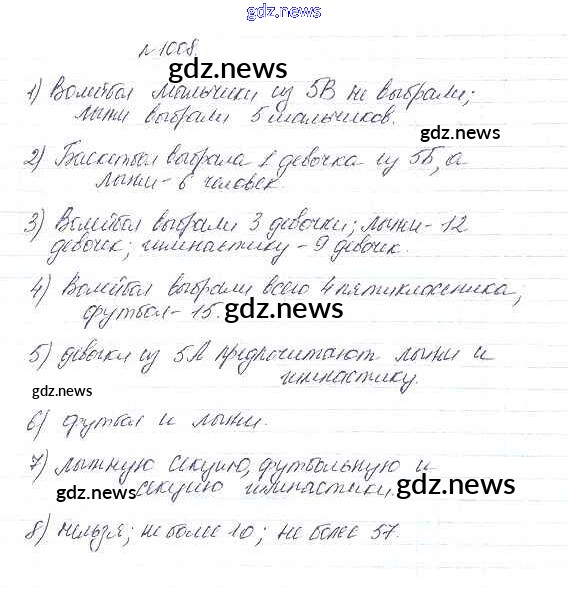 gdz.news
№1008.
gdz.news
1) Волейбол мальчики из 5В не выбрали;
лыжи выбрали 5 мальчиков.
gdz.news
2) Баскетбол выбрала 1 девочка из 5Б, а
лыжи - 6 человек.
3) Волейбол выбрали 3 девочки; лыжи - 12
девочек; гимнастику - 9 девочек.
4) Волейбол выбрали всего 4 пятиклассника;
футбол - 15.
gdz.news
5) девочки из 5А предпочитают лыжи и
гимнастику.
gdz.news
6) футбол и лыжи.
7) лыжную секцию, футбольную и
секцию гимнастики.
gdz.news
gdz.news
8) нельзя; не более 10; не более 57.